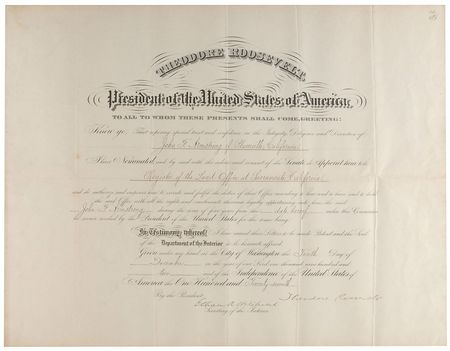 THEODORE ROOSEVELT,
President of the United States of America,
TO ALL TO WHOM THESE PRESENTS SHALL COME, GREETING:
Know ye, That reposing special trust and confidence in the Integrity, Diligence and Discretion of
John F. Armstrong of California
I have Nominated and by and with the advice and consent of the Senate do Appoint him to be
Register of the Land Office at Sacramento, California
and do authorize and empower him to execute and fulfil the duties of that Office according to law and to have and to hold
the said Office with all the rights and emoluments thereunto legally appertaining unto him the said
John F. Armstrong during the term of four years from the date hereof unless this Commission
be sooner revoked by the President of the United States for the time being.
In Testimony whereof, I have caused these Letters to be made Patent and the Seal
of the Department of the Interior to be hereunto affixed.
Given under my hand at the City of Washington the Day of
in the year of our Lord one thousand nine hundred and
two and of the Independence of the United States of
America the One Hundred and Twenty-seventh.
By the President:
Theodore Roosevelt
Ethan A. Hitchcock
Secretary of the Interior.